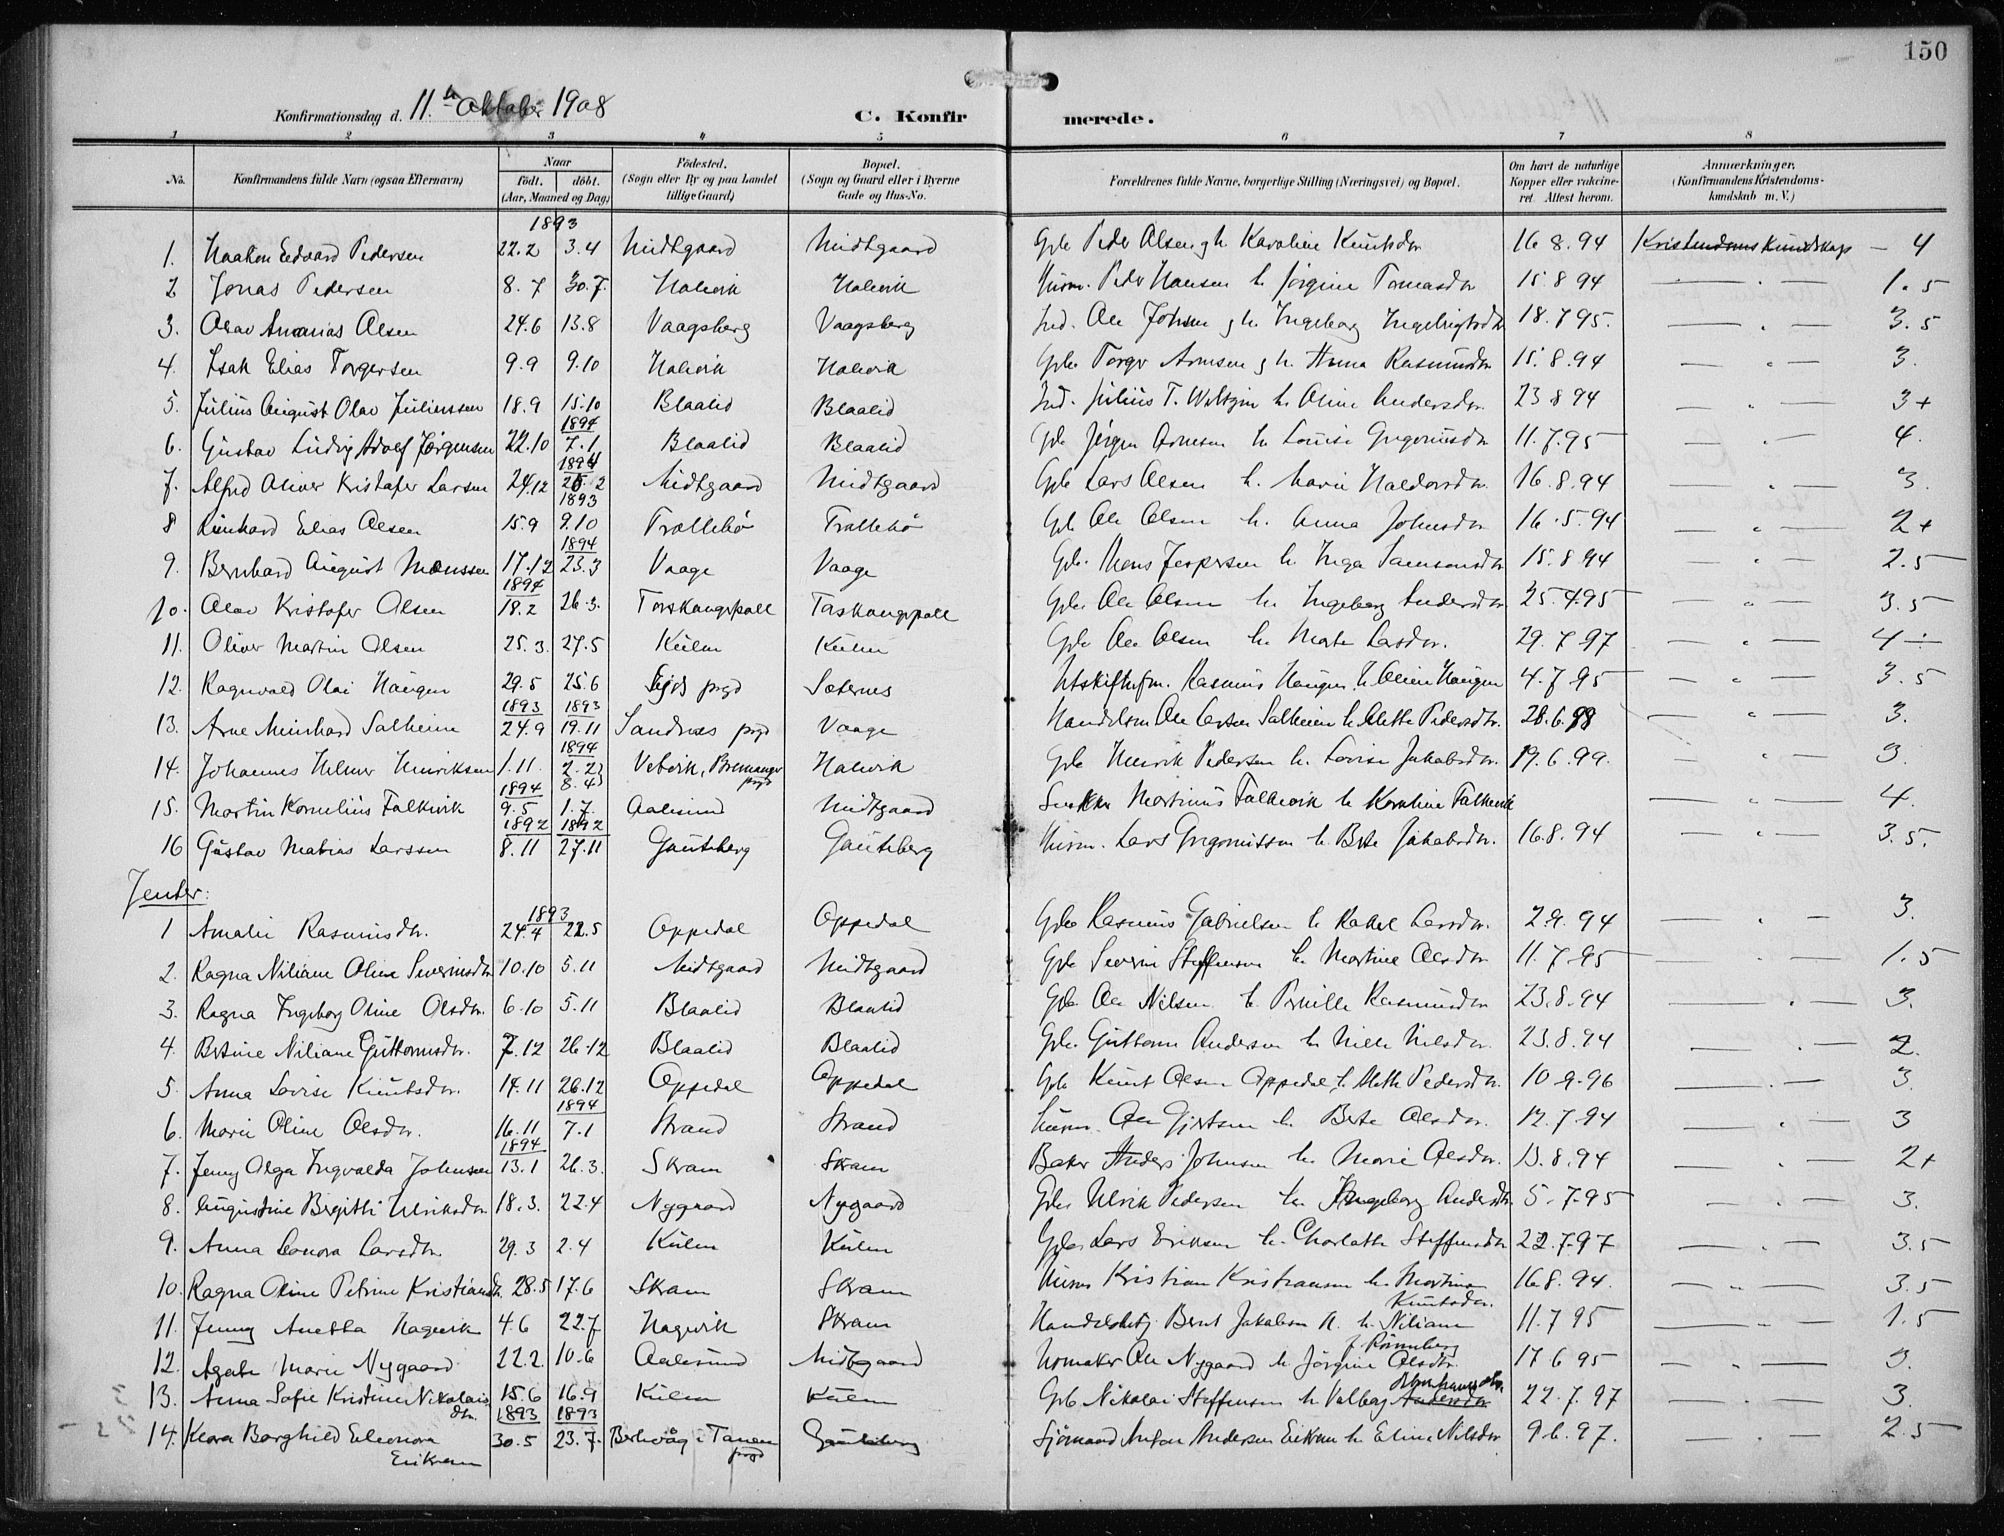 150
Konfirmationsdag d. 11. Oktober 1908
C. Konfirmerede.
1 2 3 4 5 6 7 8
No. Konfirmandens fulde Navn (ogsaa Efternavn) Naar født. døbt. (Aar, Maaned og Dag) Fødested. (Sogn eller By og paa Landet tillige Gaard) Bopæl. (Sogn og Gaard eller i Byerne Gade og Hus-No. Forældrenes fulde Navne, borgerlige Stilling (Næringsvei) og Bopæl. Om havt de naturlige Kopper eller vakcineret. Attest herom. Anmærkninger. (Konfirmandens Kristendomskundskab m. V.)
1893
1. Haakon Edvard Pedersen 22.2 3.4 Midtgaard Midtgaard Gbr. Peder Olsen g h. Karoline Knutsdtr 16 8.94 Kristendoms Kundskap — 4
2 Jonas Pedersen 8.7 30.7. Halvik Halvik Husm. Peder Hansen h. Jørgine Tomasdtr 15 8 94 — „ — 1.5
3. Olav Ananias Olsen 24.6 13.8 Vaagsberg Vaagsberg Ind. Ole Johnsen g h. Ingeborg Ingebrigtsdtr 18.7 95. — „ — 3.5
4. Isak Elias Torgersen 9.9 9.10 Halvik Halvik Gbr. Torger Arnesen g h. Anna Rasmusdtr 15.8.94 — „ — 3.
5. Julius August Olav Juliussen 18.9 15.10 Blaalid Blaalid Ind. Julius T. h. Oline Andersdtr. 23 8 94 — „ — 3+
1894
6. Gustav Ludvig Adolf Jørgensen 22.10 7.1 Blaalid Blaalid Gbr Jørgen Arnesen h Louise Gregoriusdtr 11.7.95 — „ — 4.
1894
7. Alfred Oliver Kristofer Larsen 24.12 25.2 Midtgaard Midtgaard Gbr Lars Olsen h. Marie Haldorsdtr. 16.8.94 — „ — 3.
1893
8 Reinhard Elias Olsen 15.9 9.10 Trollebø Trollebø Gb Ole Olsen h. Anna Johnsdtr 16.5.94 — „ — 2+
1894
9. Bernhard August Monssen 17.12 23.3 Vaage Vaage Gbr. Mons Jespersen h. Inga Samsonsdtr 15.8.94 — „ — 2.5
1894
10. Olav Kristofer Olsen 18.2 26.3. Torskangerpoll Taskangerpoll Gbr Ole Olsen h. Ingeborg Andersdtr 25.4.95 — „ — 3.5
11. Oliver Martin Olsen 25.3. 27.5 Kulen Kulen Gbr Ole Olsen h. Marte Larsdtr. 29.7.97 — „ — 4 ÷
12. Ragnvald Olai Haugen 29.5 25.6 prgd Sæternes Utskiftnfm. Rasmus Haugen h. Oline Haugen 4.7.95 — „ — 3.5
1893 1893
13. Arne Meinhard Solheim 24.9 19.11 Sandnes prgd Vaage Handelsm Ole Larsen Solheim h. Alette Pedersdtr. 28.6.98 — „ — 3.
1894
14. Johannes Helmer Henriksen 1.11. 2.2 8.4 Vetvik, Bremanger prgd Halvik Gbr Henrik Pedersen h. Lovise Jakobsdtr. 19.6.99. — „ — 3.
1894
15. Martin Kornelius Falkevik 9.5 1.7. Aalesund Midtgaard Snekker Martinus Falkevik h Karoline Falkevik — „ — 4.
1892 1892
16 Gustav Matias Larssen 8.11 27.11 Gauteberg Gauteberg Husm. Lars Gregoriussen h. Berte Jakobsdtr. 16.8.94 — „ — 3.5.
Jenter:
1893
1 Amalie Rasmusdtr. 24.4 22.5 Oppedal Oppedal Gbr Rasmus Gabrielsen h Rakel Larsdtr. 2.9.94 — „ — 3.
2. Ragna Niliane Oline Severinsdtr 10.10 5.11 Midtgaard Midtgaard Gbr Severin Steffensen h. Martine Olsdtr 11.7.95 — „ — 1.5
3. Ragna Ingeborg Oline Olsdtr. 6.10 5.11 Blaalid Blaalid Gbr Ole Nilsen h. Pernille Rasmusdtr 23.8.94 — „ — 3.
4. Bertine Niliane Guttormsdtr. 7.12 26.12 Blaalid Blaalid Gbr. Guttorm Andersen h Nille Nilsdtr. 23.8.94 — „ — 2.
5. Anna Lovise Knutsdtr. 14.11 26.12 Oppedal Oppedal Gbr Knut Olsen Oppedal h. Alette Pedersdtr. 10.9.96 — „ — 3.
1894
6. Marie Oline Olsdtr. 16.11 7.1 Strand Strand Husm. Ole Gjertsen h. Berte Olsdtr. 12.7.94 — „ — 3
1894
7. Jenny Olga Ingvalda Johnsen 13.1 26.3. Skram Skram Baker Anders Johnsen h. Marie Olsdtr. 13.8.94 — „ — 2+
8. Augustine Birgitte Ulriksdtr. 18.3. 22.4 Nygaard Nygaard Gbr Ulrik Pedersen h. Ingeborg Andersdtr. 5.7.95 — „ — 3.
9. Anna Leonora Larsdtr. 29.3 2.4 Kulen Kulen Gbr Lars Eriksen h. Charlotte Steffensdtr 22.7.97 — „ — 3.5
10. Ragna Oline Petrine Kristiansdtr. 28.5 17.6 Skram Skram Husm Kristian Kristiansen h. Martine Knutsdtr. 16.8.94. — „ — 3.5
11. Jenny Anetta Hagevik 4.6 22.7 Hagevik Skram Handelsbetj. Bernt Jakobsen H. h. Niliane f. Rønneberg 11.7 95 — „ — 1.5
12. Agate Marie Nygaard 22.2 10.6 Aalesund Midtgaard Urmaker Ole Nygaard h. Jørgine Olsdtr. 17 6 95 — „ — 3.
13. Anna Sofie Kristine Nikolaisdtr. 15.6 16.9 Kulen Kulen Gbr Nikolai Steffensen h Valborg Andersdtr Abrahamsdtr. 22.7.97 — „ — 3.
1893 1893
14. Klara Borghild Eleonora Eriksen 30.5 23.7. Berlevåg i Tanen prgd Gauteberg Sjømand Anton Andersen Eriksen h. Eline Nilsdtr 9 6.97. — „ — 2.5